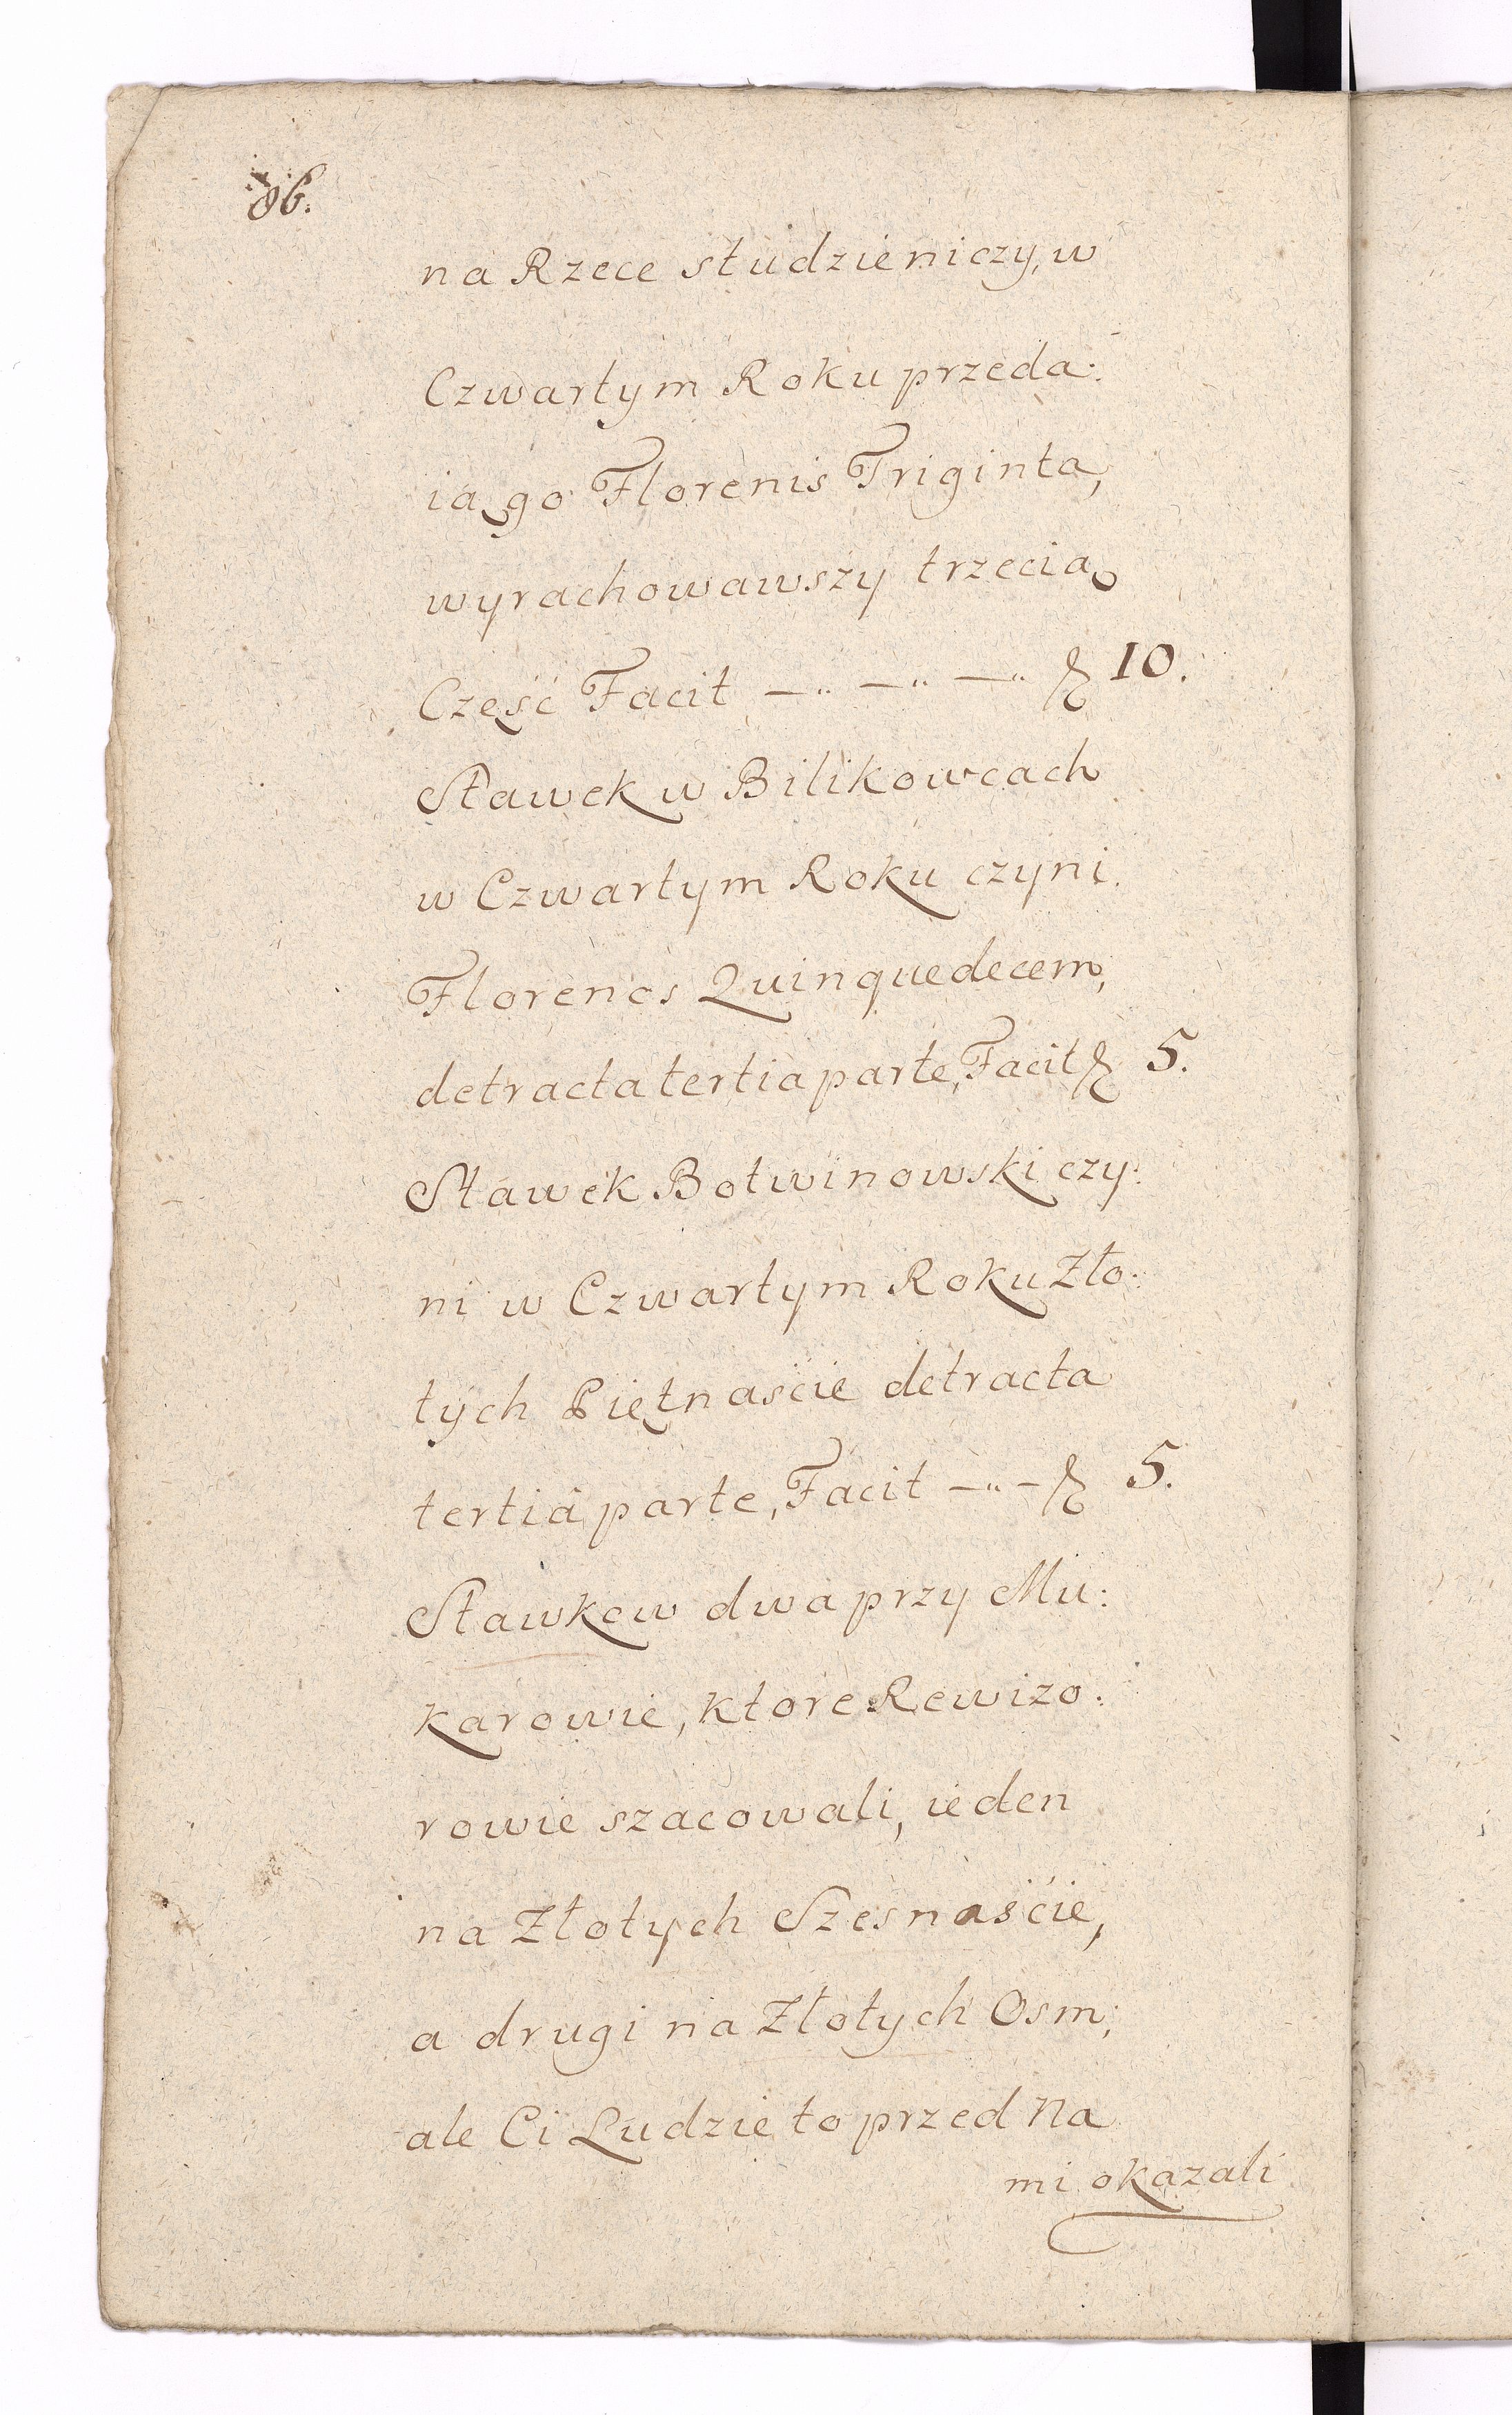 86.
na Rzece studzieniczy, w
Czwartym Roku przeda:
ią go Florenis Triginta,
wyrachowawszy trzecią
Część Facit —„ —„ —„ ƶ 10.
Stawek w Bilikowcach
w Czwartym Roku czyni
Florenos Quinquedecem,
detracta tertia parte, Facit ƶ 5.
Stawek Botwinowski czy:
ni w Czwartym Roku Zło:
tych Piętnaście detracta
tertia parte, Facit —„ — ƶ 5.
Stawkow dwa przy Mu:
karowie, ktore Rewizo:
rowie szacowali, ieden
na Złotych Szesnaście,
a drugi na Złotych Osm;
ale Ci Ludzie to przed Na
mi okazali